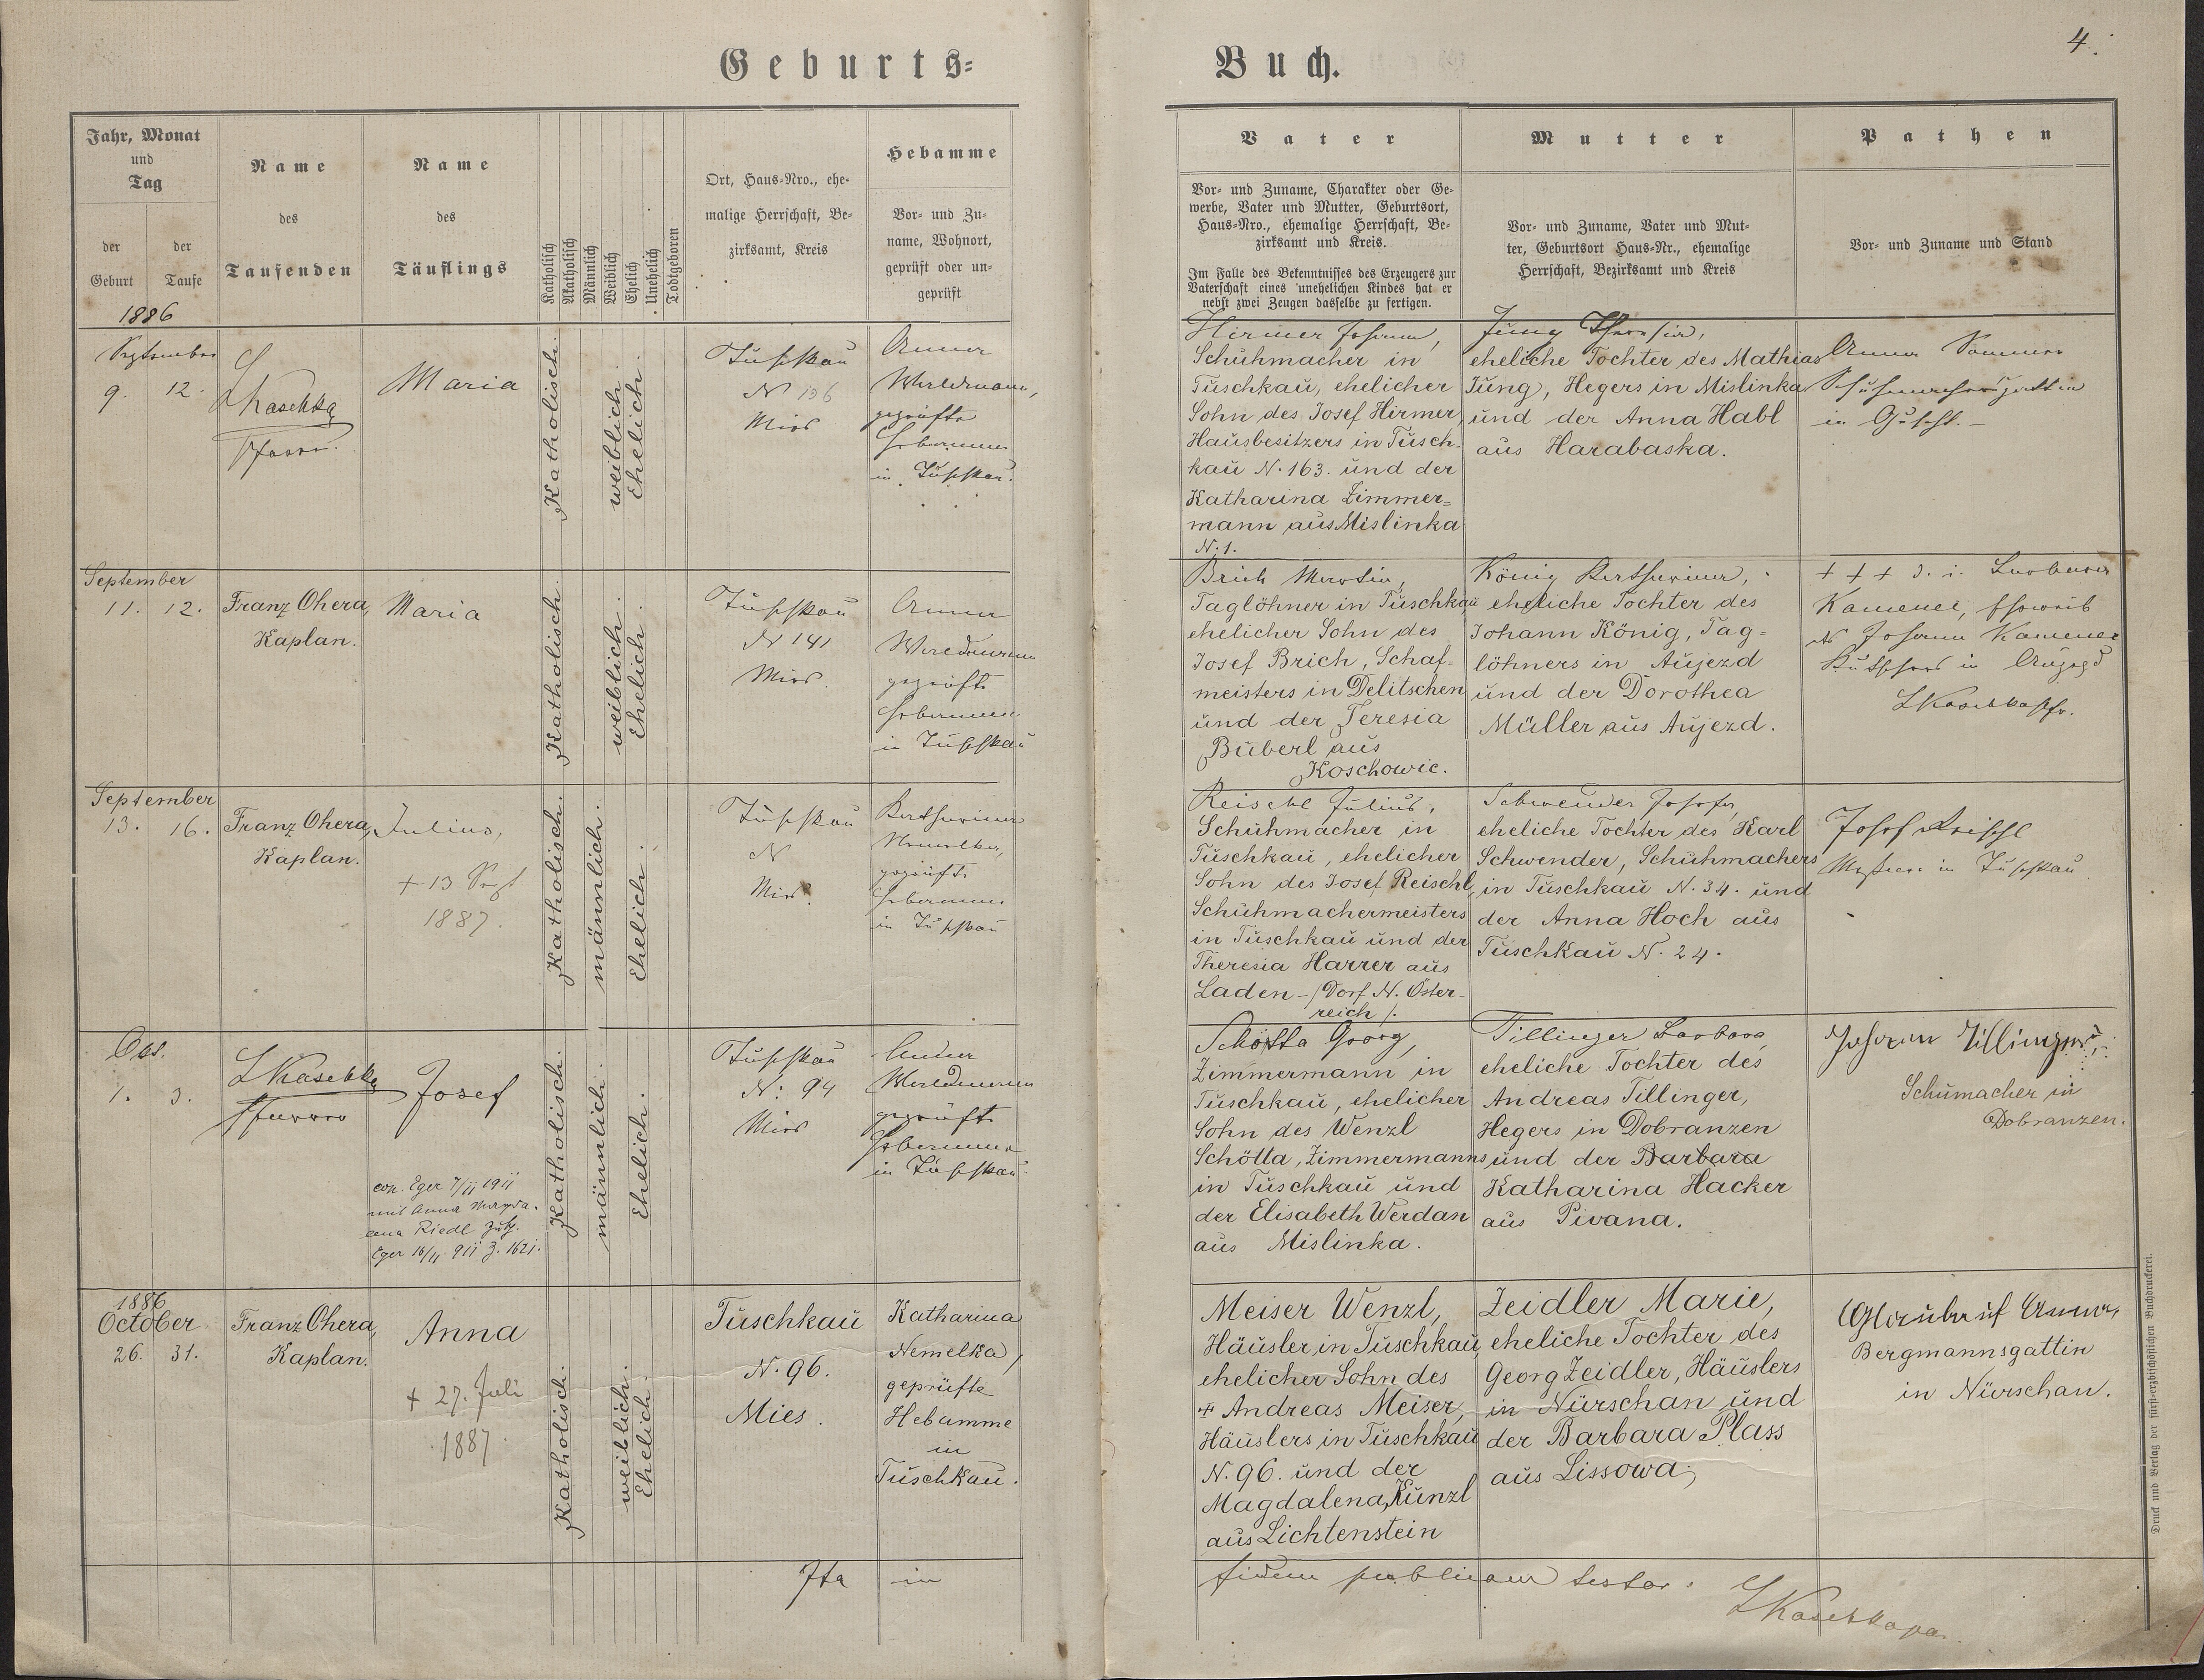 Geburts=
Buch.
4.
Jahr, Monat
und
Tag
der
Geburt
der
Taufe
1886
Name
des
Taufenden
Name
des
Täuflings
Katholisch
Akatholisch
Männlich
Weiblich
Ehelich
Unehelich
Todtgeboren
Ort, Haus-Nro., ehe-
malige Herrschaft, Be-
zirksamt, Kreis
Hebamme
Vor- und Zu-
name, Wohnort,
geprüft oder un-
geprüft
Vater
Vor- und Zuname, Charakter oder Ge-
werbe, Vater und Mutter, Geburtsort,
Haus-Nro., ehemalige Herrschaft, Be-
zirksamt und Kreis.
Im Falle des Bekenntnisses des Erzeugers zur
Vaterschaft eines unehelichen Kindes hat er
nebst zwei Zeugen dasselbe zu fertigen.
Mutter
Vor- und Zuname, Vater und Mut-
ter, Geburtsort Haus-Nr., ehemalige
Herrschaft, Bezirksamt und Kreis
Pathen
Vor- und Zuname und Stand
September
9. 12.
LKaschka
Pfarrer.
Maria
Katholisch.
weiblich.
Ehelich.
Tuschkau
N 136
Mies
Anna
Waldmann,
geprüfte
Hebamme
in Tuschkau.
Hirmer Johann,
Schuhmacher in
Tuschkau, ehelicher
Sohn des Josef Hirmer,
Hausbesitzers in Tusch-
kau N. 163. und der
Katharina Zimmer=
mann aus Mislinka
N. 1.
Jung Theresia,
eheliche Tochter des Mathias
Jung, Hegers in Mislinka
und der Anna Habl
aus Harabaska.
Anna Sommer
Schuhmachersgattin
in
September
11. 12.
Franz Ohera,
Kaplan.
Maria
Katholisch.
weiblich.
Ehelich.
Tuschkau
N 141
Mies.
Anna
Waldmann
geprüfte
Hebamme
in Tuschkau
Brich Martin,
Taglöhner in Tuschkau
ehelicher Sohn des
Josef Brich, Schaf=
meisters in Delitschen
und der Teresia
Buberl aus
Koschowic.
König Katharina,
eheliche Tochter des
Johann König, Tag=
löhners in Aujezd
und der Dorothea
Müller aus Aujezd.
+ + + d. i. Barbara
Kamenec, Eheweib
des Johann Kamenec
Kutschers in Aujezd
LKaschkaPfr.
September
13. 16.
Franz Ohera,
Kaplan.
Julius,
+ 13 Sept
1887.
Katholisch.
männlich.
Ehelich.
Tuschkau
N
Mies.
Katharina
Nemelka,
geprüfte
Hebamme
in Tuschkau
Reischl Julius,
Schuhmacher in
Tuschkau, ehelicher
Sohn des Josef Reischl,
Schuhmachermeisters
in Tuschkau und der
Theresia Harrer aus
Laden-/Dorf N. Öster-
reich/.
Schwender Josefa,
eheliche Tochter des Karl
Schwender, Schuhmachers
in Tuschkau N. 34. und
der Anna Hoch aus
Tuschkau N. 24.
Josef Reischl
in Tuschkau
Oct.
1. 3.
LKaschka
Pfarrer
Josef
cop. Eger 7/ii 1911
mit Anna Magda-
lena Riedl
Eger 16/11 911 Z. 1621.
Katholisch.
männlich.
Ehelich.
Tuschkau
N: 94
Mies
Anna
Waldmann
geprüfte
Hebamme
in Tuschkau.
Schötta Georg,
Zimmermann in
Tuschkau, ehelicher
Sohn des Wenzl
Schötta, Zimmermanns
in Tuschkau und
der Elisabeth Werdan
aus Mislinka.
Tillinger Barbara,
eheliche Tochter des
Andreas Tillinger,
Hegers in Dobranzen
und der Barbara
Katharina Hacker
aus Pivana.
Johann Tillinger,
Schumacher in
Dobranzen.
1886
October
26. 31.
Franz Ohera,
Kaplan.
Anna
+ 27. Juli
1887.
Katholisch.
weiblich.
Ehelich.
Tuschkau
N. 96.
Mies.
Katharina
Nemelka,
geprüfte
Hebamme
in
Tuschkau.
Meiser Wenzl,
Häusler in Tuschkau,
ehelicher Sohn des
+ Andreas Meiser,
Häuslers in Tuschkau
N. 96. und der
Magdalena Künzl
aus Lichtenstein
Zeidler Marie,
eheliche Tochter des
Georg Zeidler, Häuslers
in Nürschan und
der Barbara Plass
aus Lissowa,
Anna,
Bergmannsgattin
in Nürschan.
Ita in fidem publicam testor.
LKaschka
Druck und Verlag der fürst-erzbischöflichen Buchdruckerei.